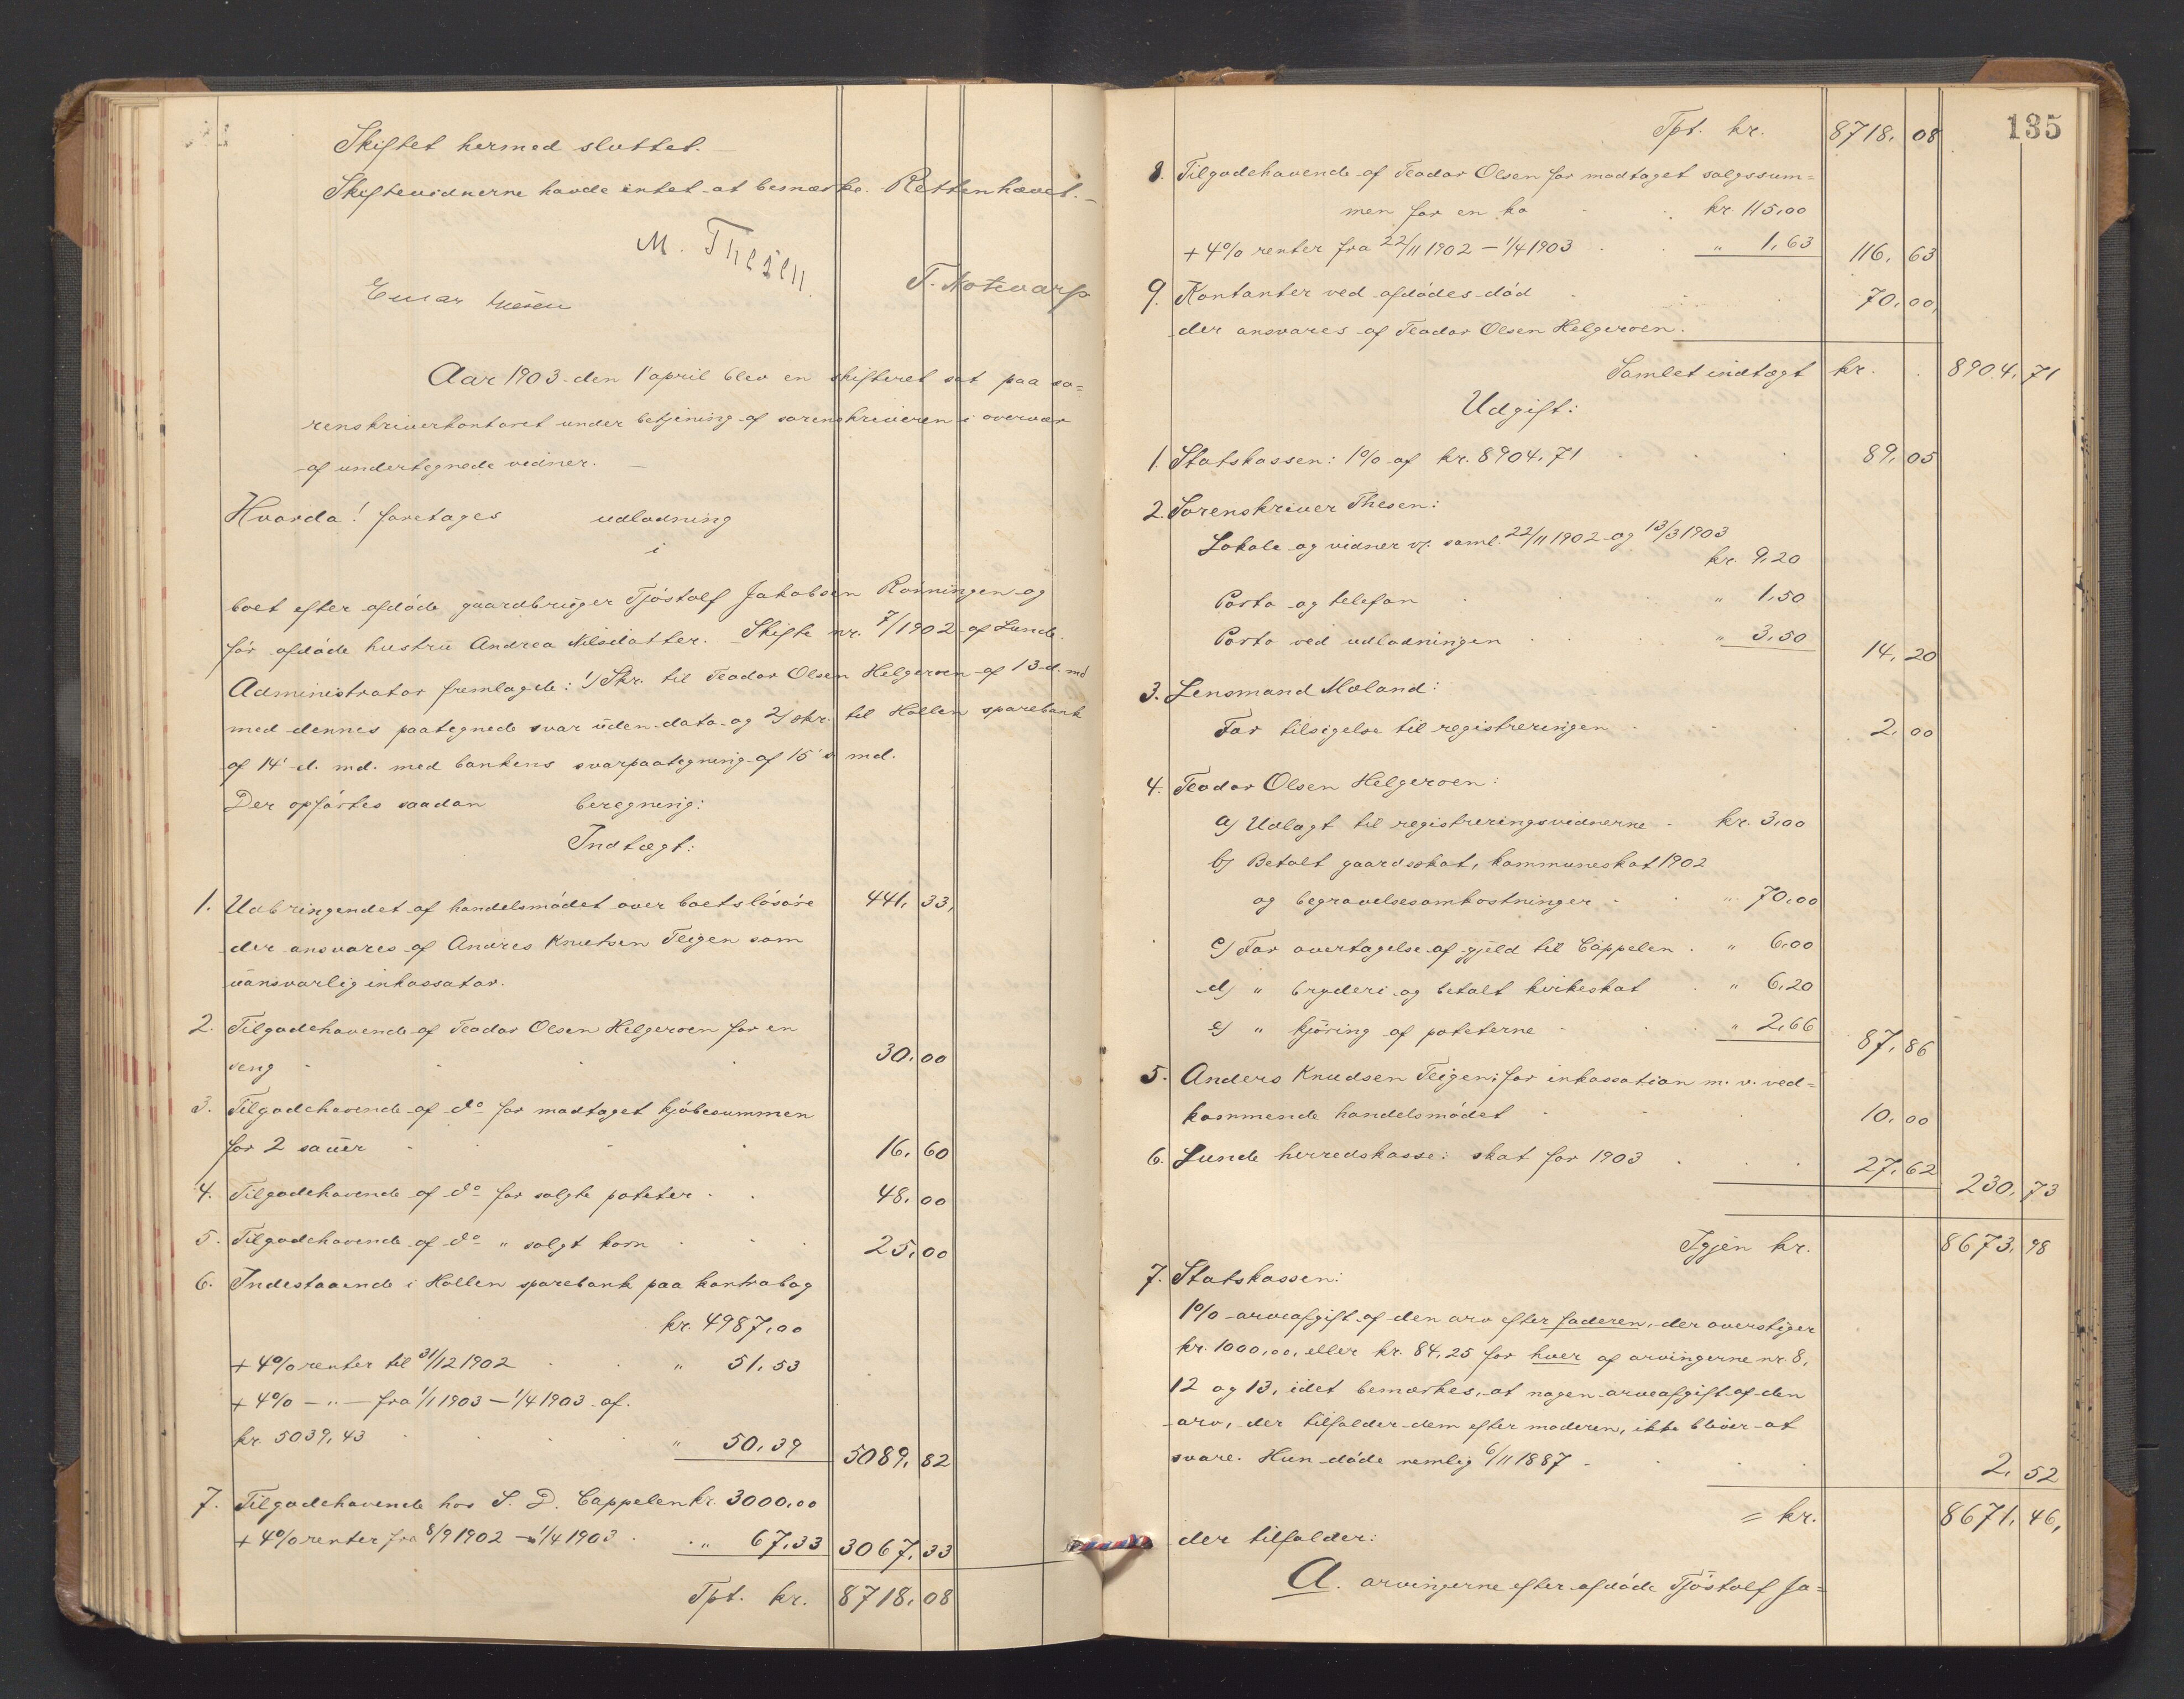 Skiftet hermed sluttet. —
Skiftevidnerne havde intet at bemærke. Retten hævet. —
M. Thesen
T. Notevarp
Einar
Aar 1903 den 1' april blev en skifteret sat paa so=
renskriverkontoret under betjening af sorenskriveren i overvær
af undertegnede vidner. —
Hvorda! foretages udlodning
i
boet efter afdøde gaardbruger Tjöstolf Jakobsen Rönningen og
før afdøde hustru Andrea Nilsdatter. Skifte nr. 7/1902 af Lunde.
Administrator fremlagde: 1) Skr. til Teodor Olsen Helgeroen af 13 d. md
med dennes paategnede svar uden data og 2) skr. til Hollen sparebank
af 14' d. md. med bankens svarpaategning af 15' s md.
Der opførtes saadan beregning:
Indtægt:
1. Udbringendet af handelsmödet over boets lösöre 441, 33,
der ansvares af Andres Knutsen Teigen som
uansvarlig inkassator.
2. Tilgodehavende af Teodor Olsen Helgeroen for en
seng 30, 00
3. Tilgodehavende af do for modtaget kjöbesummen
for 2 sauer 16, 60
4. Tilgodehavende af do for solgte poteter 48, 00
5. Tilgodehavende af do " solgt korn 25, 00
6. Indestaaende i Hollen sparebank paa kontrabog
kr. 4987,00
+ 4% renter til 31/12 1902 " 51,53
+ 4% — " — fra 1/1 1903 — 1/4 1903 af
kr. 5039,43 " 50,39 5089, 82
7. Tilgodehavende hos S. D. Cappelen kr. 3000,00
+ 4% renter fra 8/9 1902 — 1/4 1903 " 67,33 3067, 33
Tpt. kr. 8718, 08
135
Tpt. kr. 8718, 08
8. Tilgodehavende af Teodor Olsen for modtaget salgssum=
men for en ko kr. 115,00
+ 4% renter fra 22/11 1902 — 1/4 1903 " 1,63 116, 63
9. Kontanter ved afdødes död 70, 00,
der ansvares af Teodor Olsen Helgeroen.
Samlet indtægt kr. 8904, 71
Udgift:
1. Statskassen: 1% af kr. 8904,71 89, 05
2. Sorenskriver Thesen:
Lokale og vidner v. saml. 22/11 1902 og 13/3 1903
kr. 9,20
Porto og telefon " 1,50
Porto ved udlodningen " 3,50 14, 20
3. Lensmand Moland:
For tilsigelse til registreringen 2, 00
4. Teodor Olsen Helgeroen:
a) Udlagt til registreringsvidnerne kr. 3,00
b) Betalt gaardsskat, kommuneskat 1902
og begravelsesomkostninger " 70,00
c) For overtagelse af gjeld til Cappelen " 6,00
d) " bryderi og betalt kirkeskat " 6,20
e) " kjöring af poteterne " 2,66 87, 86
5. Anders Knudsen Teigen: for inkassation m. v. ved=
kommende handelsmödet 10, 00
6. Lunde herredskasse: skat for 1903 27, 62 230, 73
Igjen kr. 8673, 98
7. Statskassen:
1% arveafgift af den arv efter faderen, der overstiger
kr. 1000,00, eller kr. 84,25 for hver af arvingerne nr. 8,
12 og 13, idet bemærkes, at nogen arveafgift af den
arv, der tilfalder dem efter moderen, ikke bliver at
svare. Hun döde nemlig 6/11 1887 2, 52
= kr. 8671, 46,
der tilfalder:
A. arvingerne efter afdøde Tjöstolf Ja=